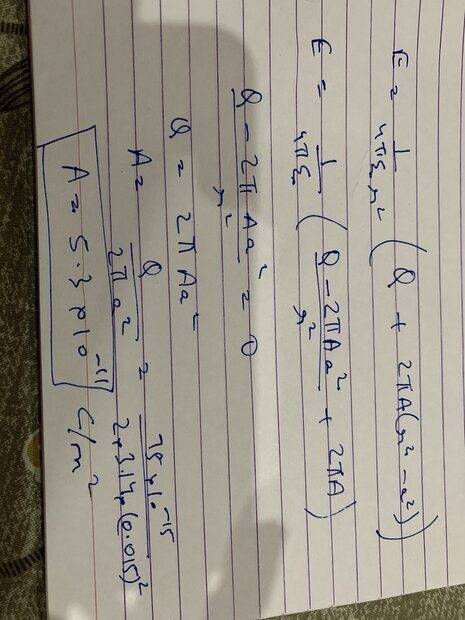 E = 1/4πε₀r² (Q + 2πA(r² - a²))
E = 1/4πε₀ ((Q - 2πAa²)/r² + 2πA)
(Q - 2πAa²)/r² = 0
Q = 2πAa²
A = Q/2πa² = 75×10⁻¹⁵/2×3.14×(0.015)²
A = 5.3×10⁻¹¹ C/m²